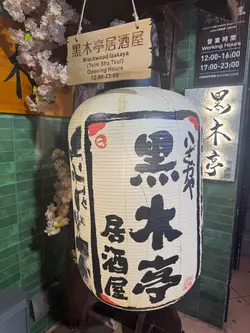 黑木亭居酒屋
Blackwood Izakaya
(Tsim Sha Tsui)
Opening Hours
12:00-23:00
營業時間
Working Hours
12:00-16:00
17:00-23:00
黑木亭
黑木亭
居酒屋